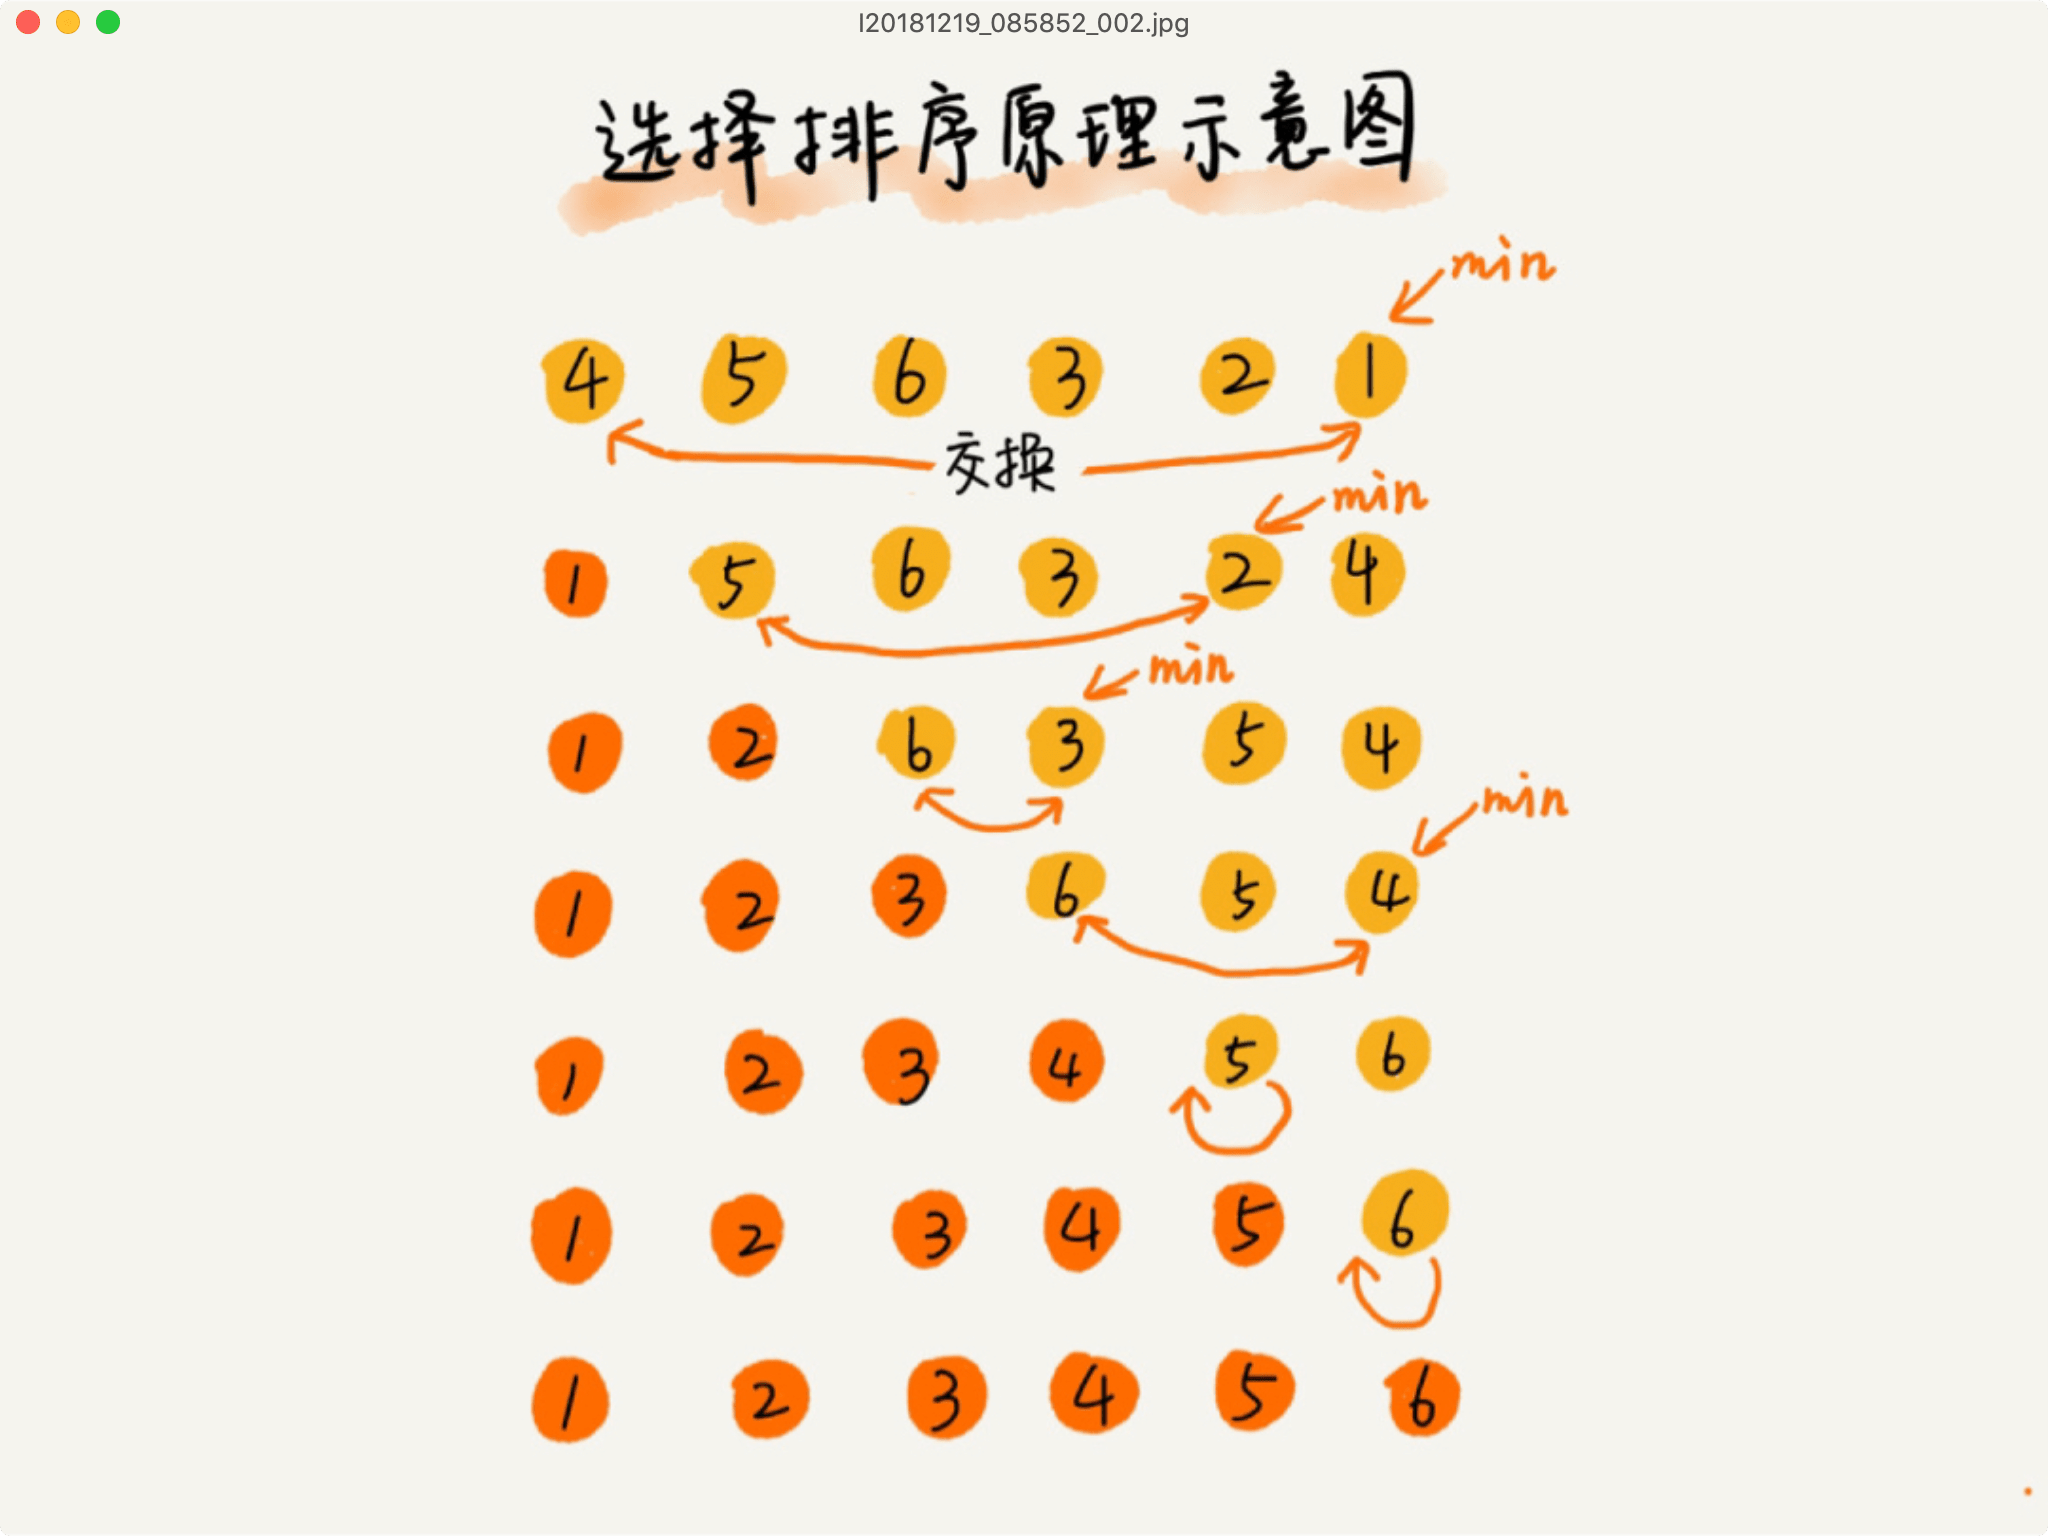 I20181219_085852_002.jpg
选择排序原理示意图
min
4 5 6 3 2 1
交换
min
1 5 6 3 2 4
min
1 2 6 3 5 4
min
1 2 3 6 5 4
1 2 3 4 5 6
1 2 3 4 5 6
1 2 3 4 5 6